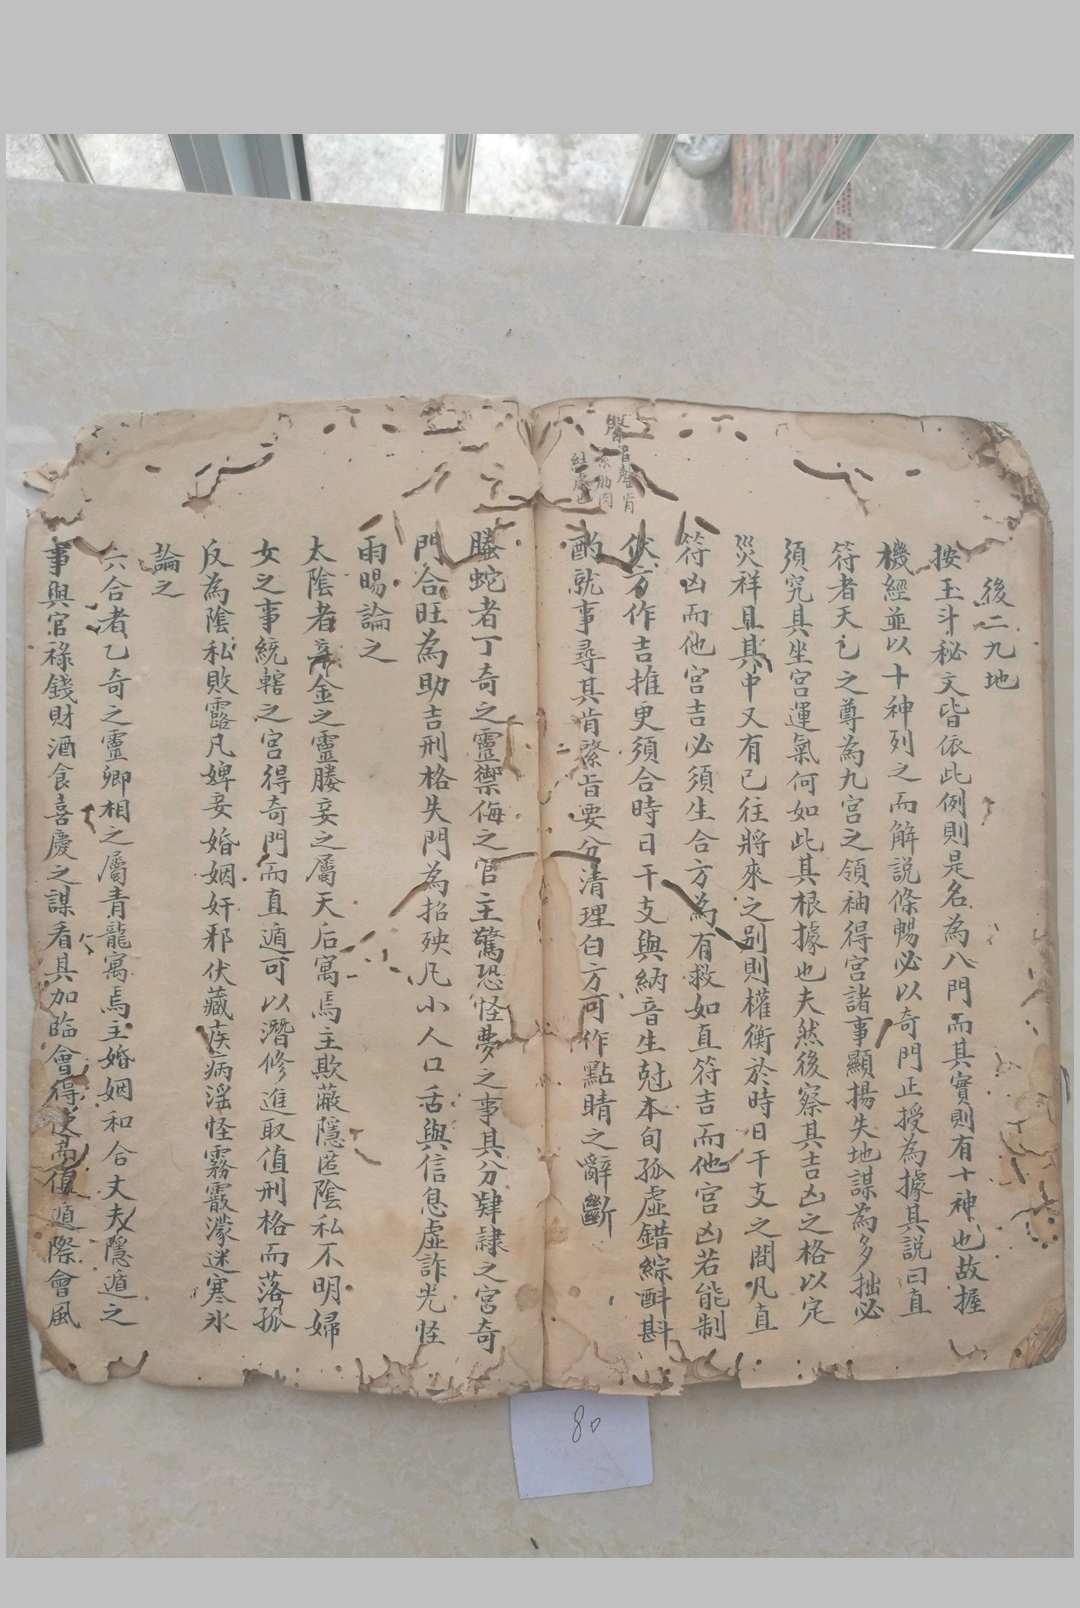 後二九地
按玉斗秘文皆依此例則是名為八門而其實則有十神也故握
機經並以十神列之而解說條暢必以奇門正授為據其說曰直
符者天乙之尊為九宮之領袖得宮諸事顯揚失地謀為多拙必
須究其坐宮運氣何如此其根據也夫然後察其吉凶之格以定
災祥且其中又有已往將來之别則權衡於時日干支之間凡直
符凶而他宮吉必須生合方為有救如直符吉而他宮凶若能制
伏方作吉推更須合時日干支與納音生尅本旬孤虛錯綜斟斟
酌就事尋其肯綮旨要分清理白方可作點睛之辭斷
綮音
肯
肉
螣蛇者丁奇之靈禦侮之官主驚恐怪夢之事其分肄隸之宮奇
門合旺為助吉刑格失門為招殃凡小人口舌與信息虛詐光怪
雨暘論之
太陰者辛金之靈媵妾之屬天后寓焉主欺蔽隱匿陰私不明婦
女之事統轄之宮得奇門而直遁可以潛修進取值刑格而落孤
反為陰私敗露凡婢妾婚姻奸邪伏藏疾病淫怪霧霰濛迷寒氷
論之
六合者乙奇之靈卿相之屬青龍寓焉主婚姻和合丈夫隱遁之
事與官祿錢財酒食喜慶之謀看其加臨會得值遁際會風
80